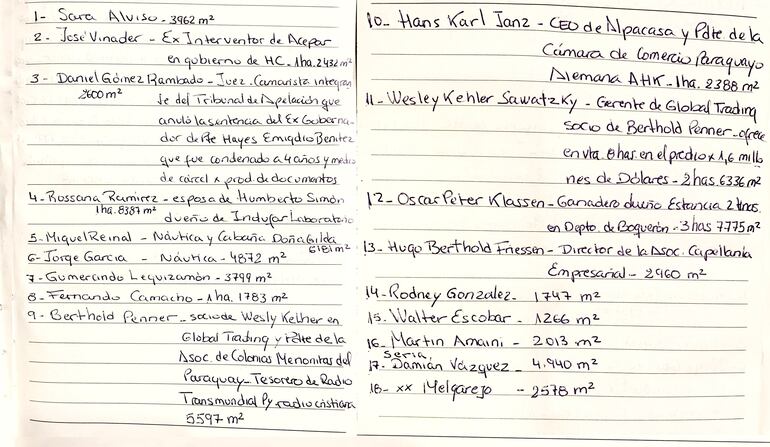 1- Sara Alviso - 3962 m²
2- José Vinader - Ex Interventor de Acepar
en gobierno de HC. 1ha. 2432 m²
3- Daniel Gómez Rambado - Juez. Camarista integran
2600 m² te del Tribunal de Apelación que
anuló la sentencia del Ex Goberna-
dor de Pte Hayes Emigdio Benítez
que fue condenado a 4 años y medio
de cárcel x prod. de documentos
4- Rossana Ramirez - esposa de Humberto Simón
1ha. 8387 m² dueño de Indufar Laboratorio
5- Miquel Reinal - Náutica y Cabaña Doña Gilda
6181 m²
6- Jorge Garcia - Náutica - 4872 m²
7- Gumercindo Leguizamón - 3799 m²
8- Fernando Camacho - 1ha. 1783 m²
9- Berthold Penner - socio de Wesly Kelher en
Global Trading y Pdte de la
Asoc. de Colonias Menonitas del
Paraguay - Tesorero de Radio
Transmundial Py radio cristiana
5597 m²
10- Hans Karl Janz - CEO de Alpacasa y Pdte de la
Cámara de Comercio Paraguayo
Alemana AHK - 1ha. 2388 m²
11- Wesley Kehler Sawatzky - Gerente de Global Trading
socio de Berthold Penner - ofrece
en vta. 8 has. en el predio x 1,6 millo
nes de Dólares - 2 has. 6336 m²
12- Oscar Peter Klassen - Ganadero dueño Estancia 2 Unos
en Depto. de Boquerón - 3 has 7775 m²
13- Hugo Berthold Friessen - Director de la Asoc. Capellanía
Empresarial - 2960 m²
14- Rodney Gonzalez - 1747 m²
15- Walter Escobar - 1266 m²
16- Martin Amaini - 2013 m²
seria,
17- Damián Vázquez - 4.940 m²
18- xx Melgarejo - 2578 m²